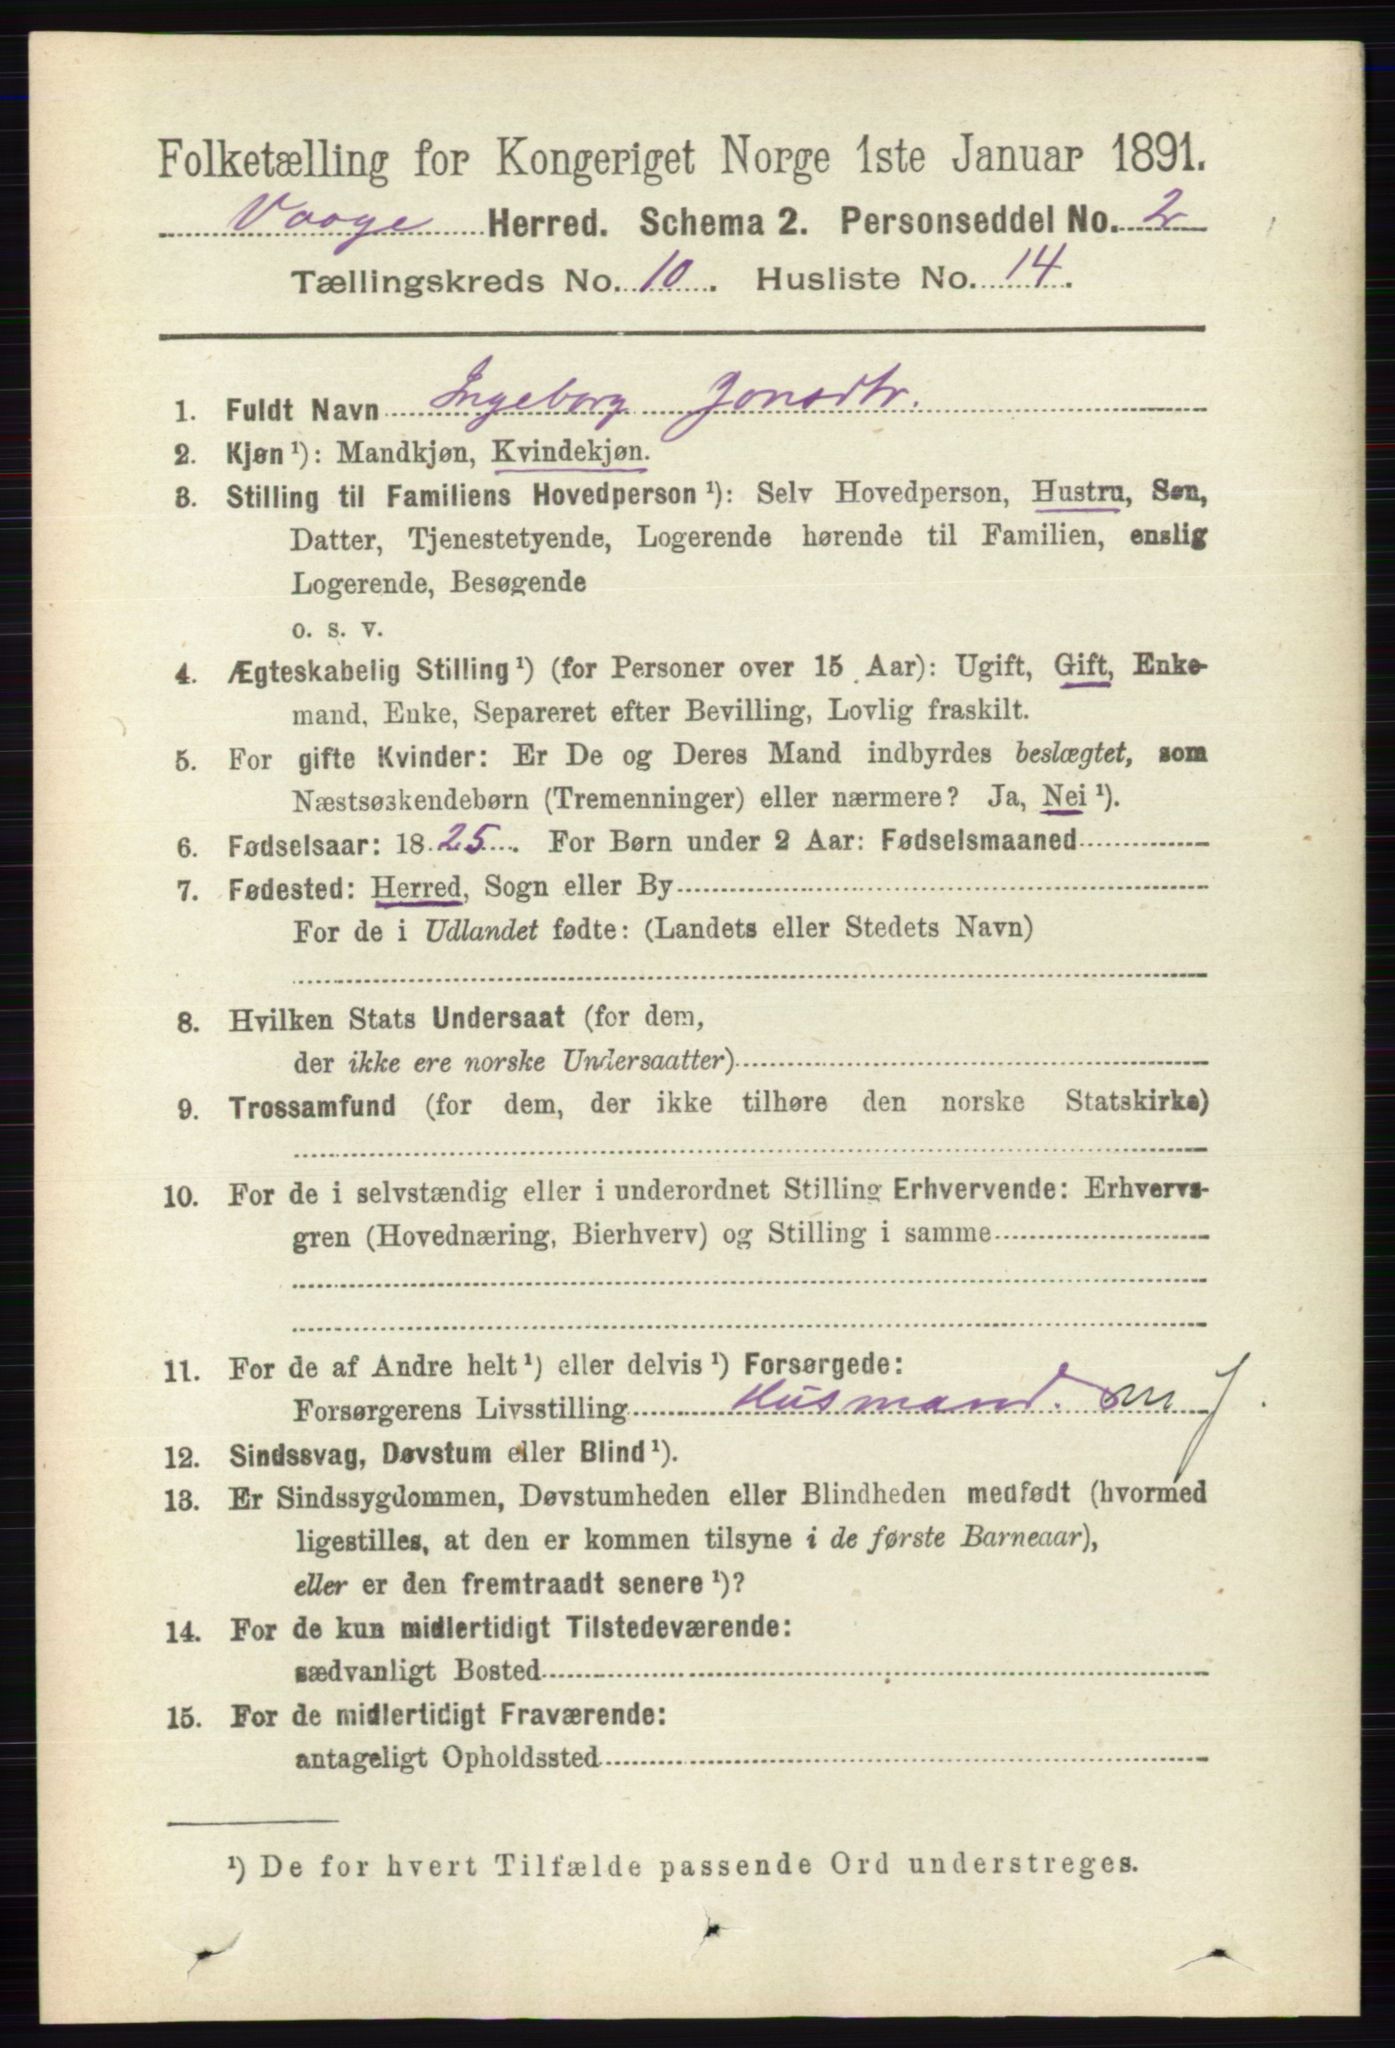 Folketælling for Kongeriget Norge 1ste Januar 1891.
Vaage Herred. Schema 2. Personseddel No. 2
Tællingskreds No. 10. Husliste No. 14.
1. Fuldt Navn Ingeborg Jonsdtr.
2. Kjøn ¹): Mandkjøn, Kvindekjøn.
3. Stilling til Familiens Hovedperson ¹): Selv Hovedperson, Hustru, Søn,
Datter, Tjenestetyende, Logerende hørende til Familien, enslig
Logerende, Besøgende
o. s. v.
4. Ægteskabelig Stilling ¹) (for Personer over 15 Aar): Ugift, Gift, Enke-
mand, Enke, Separeret efter Bevilling, Lovlig fraskilt.
5. For gifte Kvinder: Er De og Deres Mand indbyrdes beslægtet, som
Næstsøskendebørn (Tremenninger) eller nærmere? Ja, Nei ¹).
6. Fødselsaar: 1825. For Børn under 2 Aar: Fødselsmaaned
7. Fødested: Herred, Sogn eller By
For de i Udlandet fødte: (Landets eller Stedets Navn)
8. Hvilken Stats Undersaat (for dem,
der ikke ere norske Undersaatter)
9. Trossamfund (for dem, der ikke tilhøre den norske Statskirke)
10. For de i selvstændig eller i underordnet Stilling Erhvervende: Erhvervs-
gren (Hovednæring, Bierhverv) og Stilling i samme
11. For de af Andre helt ¹) eller delvis ¹) Forsørgede:
Forsørgerens Livsstilling Husmand. m J.
12. Sindssvag, Døvstum eller Blind ¹).
13. Er Sindssygdommen, Døvstumheden eller Blindheden medfødt (hvormed
ligestilles, at den er kommen tilsyne i de første Barneaar),
eller er den fremtraadt senere ¹)?
14. For de kun midlertidigt Tilstedeværende:
sædvanligt Bosted
15. For de midlertidigt Fraværende:
antageligt Opholdssted
¹) De for hvert Tilfælde passende Ord understreges.